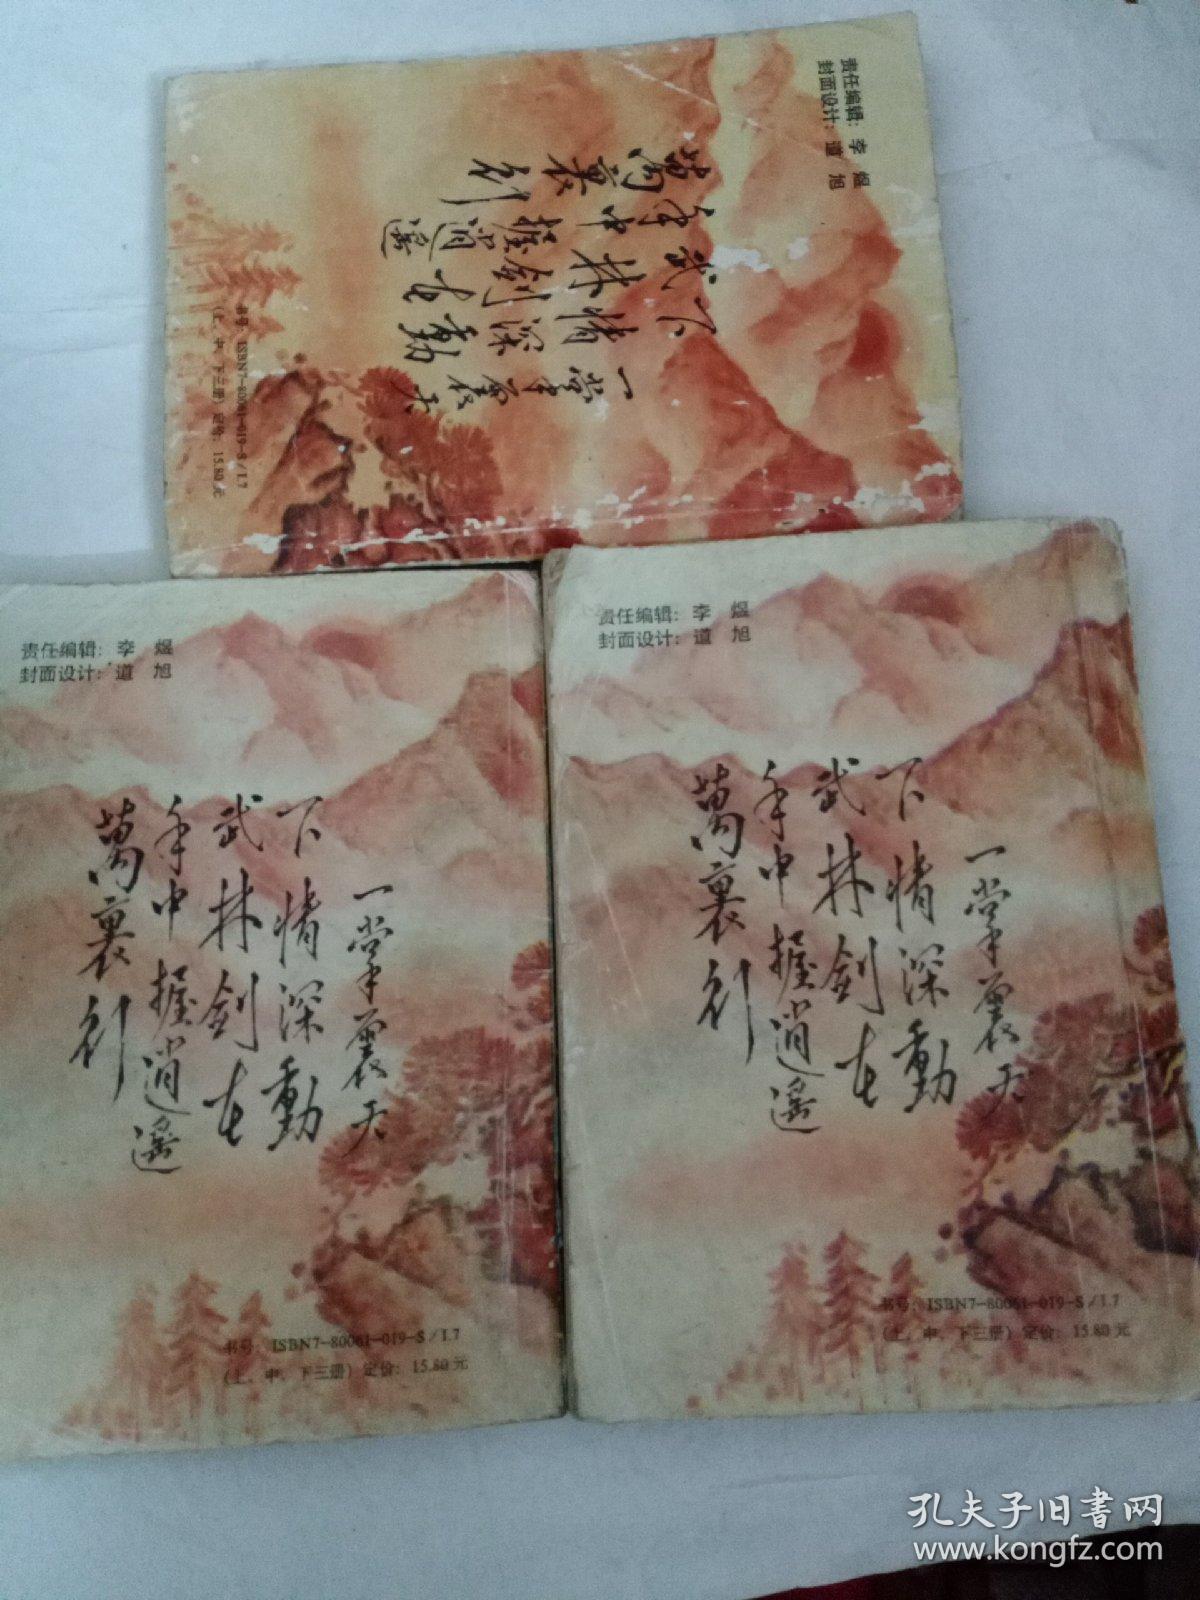 责任编辑：李 煜
封面设计：道 旭
一掌震天
下情深動
武林劍在
手中握逍遥
萬裏行
书号：ISBN7-80061-019-S/I.7
（上、中、下三册）定价：15.80元
责任编辑：李 煜
封面设计：道 旭
一掌震天
下情深動
武林劍在
手中握逍遥
萬裏行
书号：ISBN7-80061-019-S/I.7
（上、中、下三册）定价：15.80元
责任编辑：李 煜
封面设计：道 旭
一掌震天
下情深動
武林劍在
手中握逍遥
萬裏行
书号：ISBN7-80061-019-S/I.7
（上、中、下三册）定价：15.80元
孔夫子旧书网
www.kongfz.com